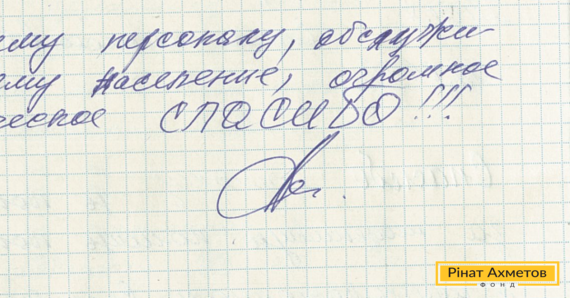 ему персоналу, обслужи-
ему население, огромное
еское СПАСИБО!!!
Рінат Ахметов
ФОНД